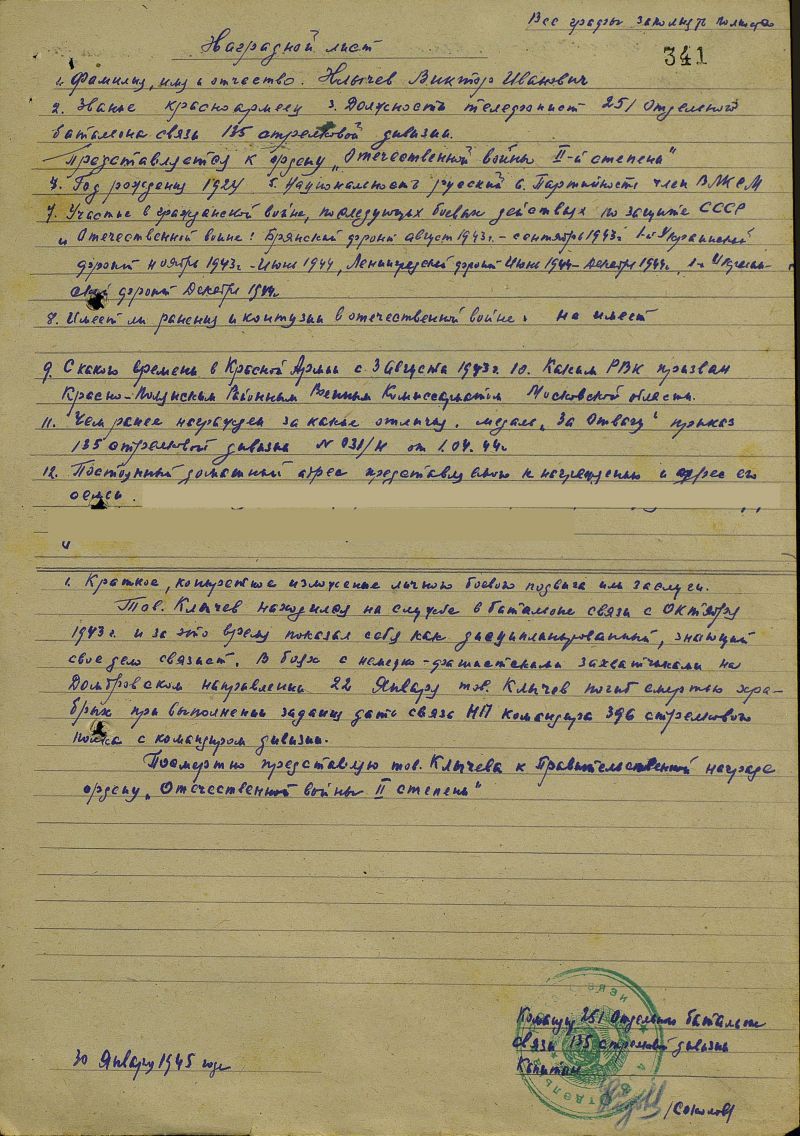 Все графы заполнять полностью
Наградной лист
341
1. Фамилия, имя и отчество. Клычев Виктор Иванович
2. Звание красноармеец 3. Должность телефонист 251 Отдельного
батальона связи 135 стрелковой дивизии.
Представляется к ордену „Отечественной войны II-й степени"
4. Год рождения 1924 5. Национальность русский 6. Партийность член ВЛКСМ
7. Участие в гражданской войне, последующих боевых действиях по защите СССР
и Отечественной войне: Брянский фронт август 1943 г. - сентябрь 1943 г. 1-й Украинской
фронт ноябрь 1943 г. - Июнь 1944, Ленинградской фронт Июнь 1944 - Декабрь 1944, 1-й Украин-
ской фронт Декабрь 1944
8. Имеет ли ранения и контузии в отечественной войне. не имеет
9. С какого времени в Красной Армии с 3 Августа 1943 г. 10. Каким РВК призван
Красно-Полянским Районным Военным Комиссариатом Московской области.
11. Чем ранее награжден за какие отличия. медаль „За Отвагу" приказ
135 стрелковой дивизии № 031/н от 1.04.44 г
12. Постоянный домашний адрес представляемого к награждению и адрес его
семьи.
1. Краткое, конкретное изложение личного боевого подвига или заслуги.
Тов. Клычев находился на службе в батальоне связи с Октября
1943 г. и за это время показал себя как дисциплинированный, знающий
свое дело связист. В боях с немецко-фашистскими захватчиками на
Домбровском направлении 22 Января тов. Клычев погиб смертью хра-
брых при выполнении задания дать связь НП командира 396 стрелкового
полка с командиром дивизии.
Посмертно представляю тов. Клычева к Правительственной награде
ордену „Отечественной войны II степени"
Командир 251 Отдельного батальона
связи 135 стрелковой дивизии
Капитан
/Соколов/
30 Января 1945 года